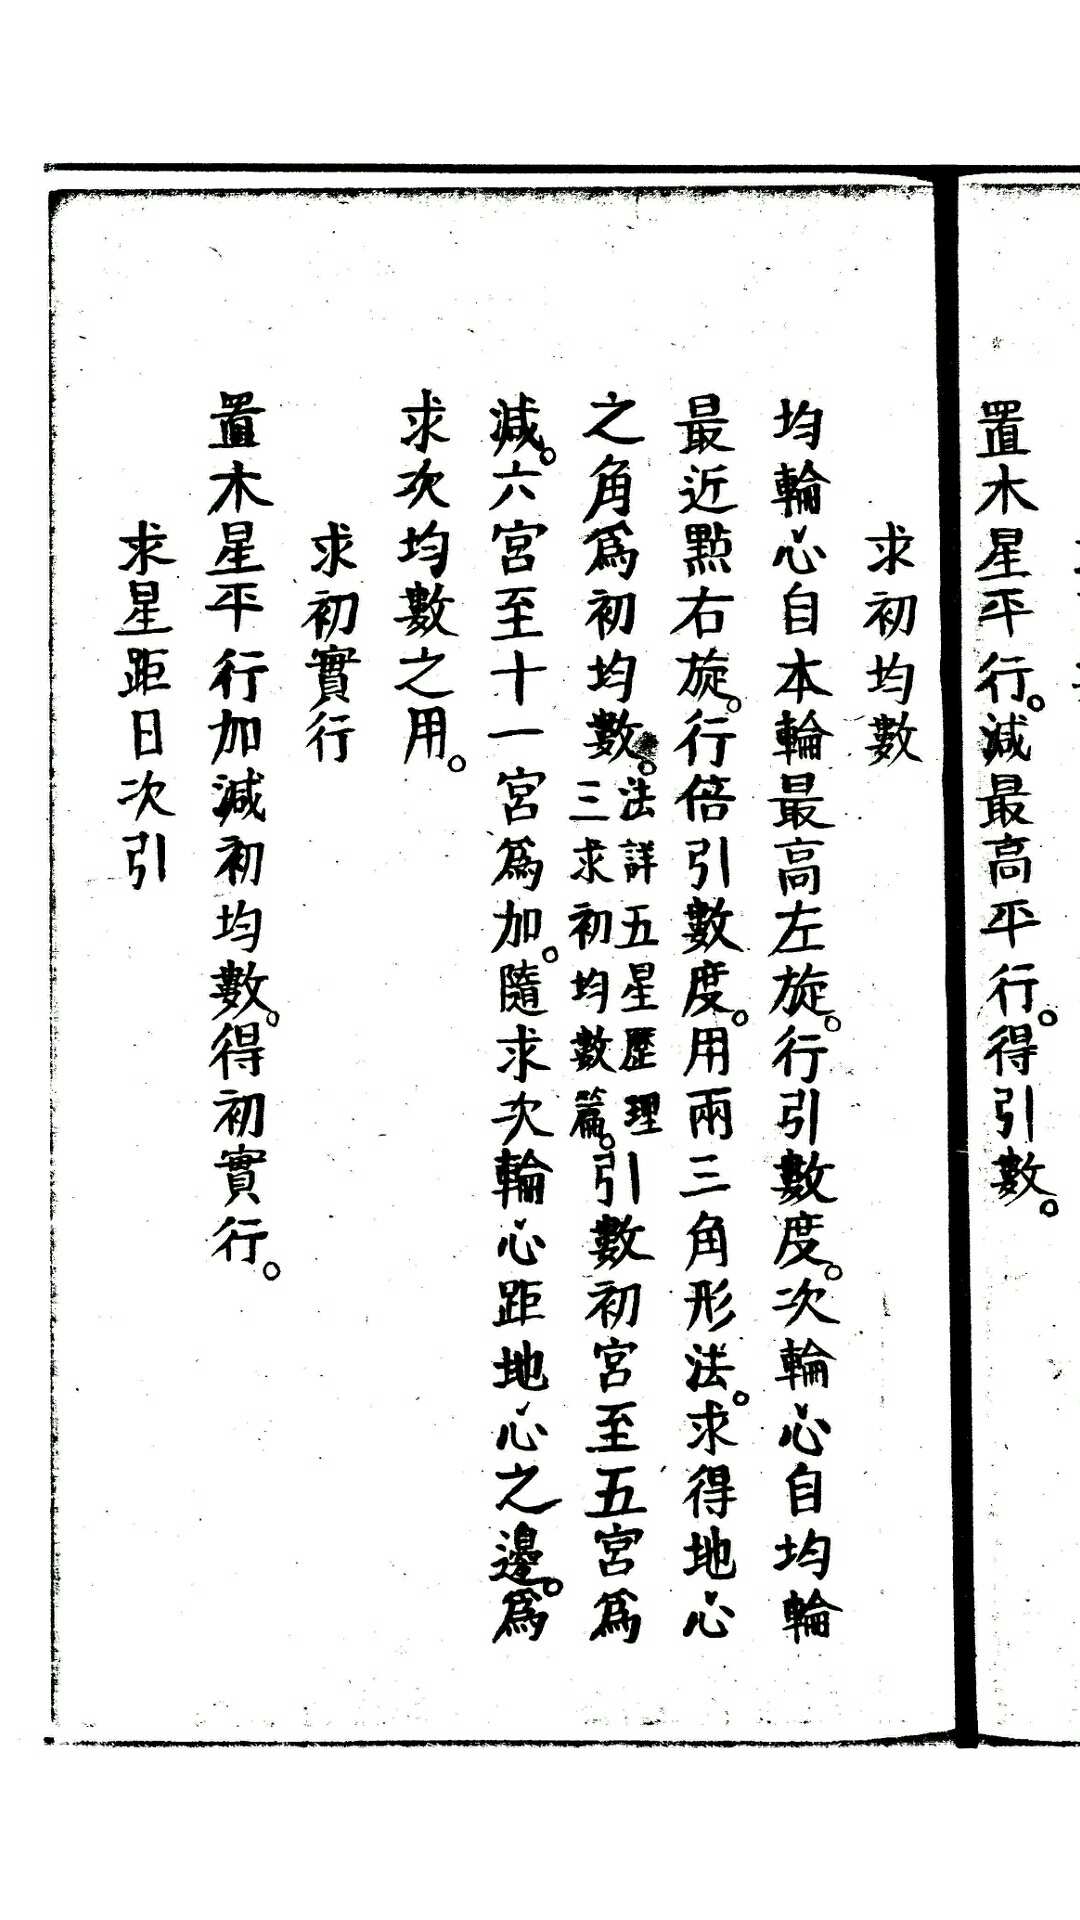 置木星平行。減最高平行。得引數。
求初均數
均輪心自本輪最高左旋。行引數度。次輪心自均輪
最近㸃右旋。行倍引數度。用兩三角形法。求得地心
之角爲初均數。法詳五星歷理三求初均數篇。引數初宮至五宮爲
減。六宮至十一宮爲加。隨求次輪心距地心之邊。爲
求次均數之用。
求初實行
置木星平行加減初均數。得初實行。
求星距日次引